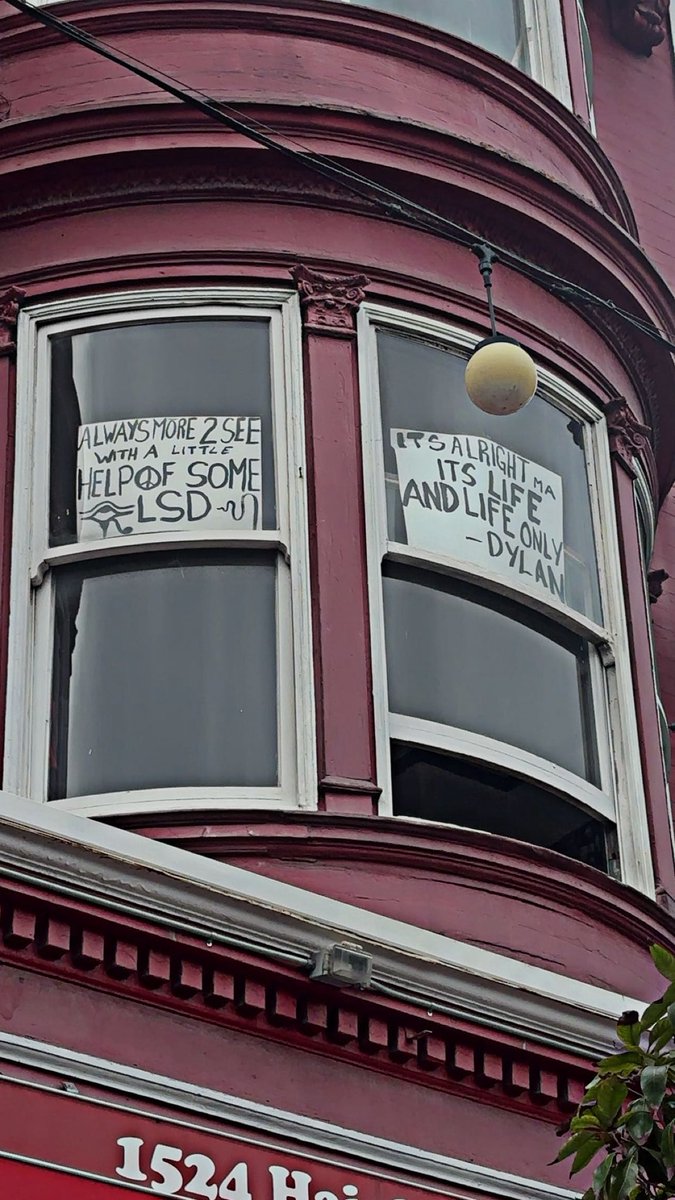 ALWAYS MORE 2 SEE
WITH A LITTLE
HELP OF SOME
LSD
ITS ALRIGHT MA
ITS LIFE
AND LIFE ONLY
-DYLAN
1524